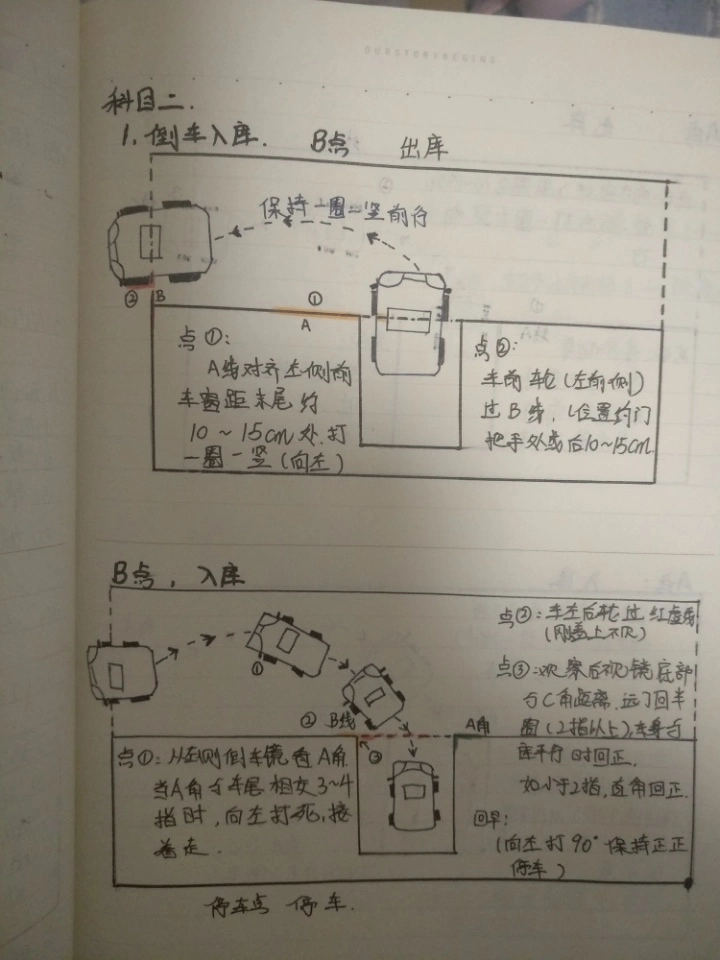 科目二.
1. 倒车入库. B点 出库
保持一圈一竖前行
② B
①
A
点①:
A线对齐左侧前
车窗距末尾约
10~15cm处.打
一圈一竖(向左)
点②:
车前轮(左前侧)
过B线,(位置约门
把手外线后10~15cm
B点,入库
点②:车左后轮过红虚线
(刚盖上不见)
点③:观察后视镜底部
与C角距离.远了回半
圈(2指以上),车身与
库平行时回正.
如小于2指,直角回正.
回早:
(向左打90°保持正正
停车)
①
② B线
③
A角
点①:从左侧倒车镜看A角
当A角与车尾相交3~4
指时,向左打死,接
着走.
停车点 停车.